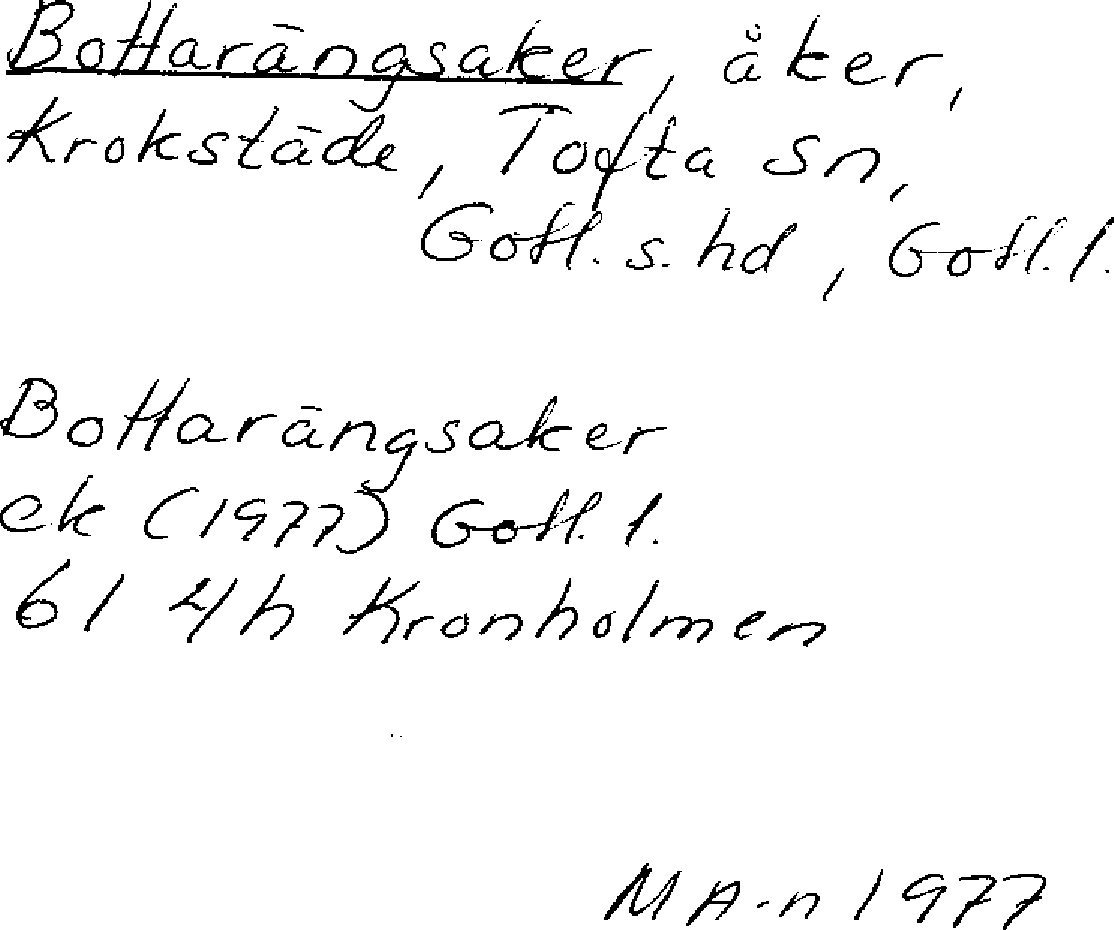 Bottarängsaker, åker,
Krokstäde, Tofta sn,
Gotl. s. hd, Gotl. l.
Bottarängsaker
ek (1977) Gotl. l.
61 4h Kronholmen
MA-n 1977